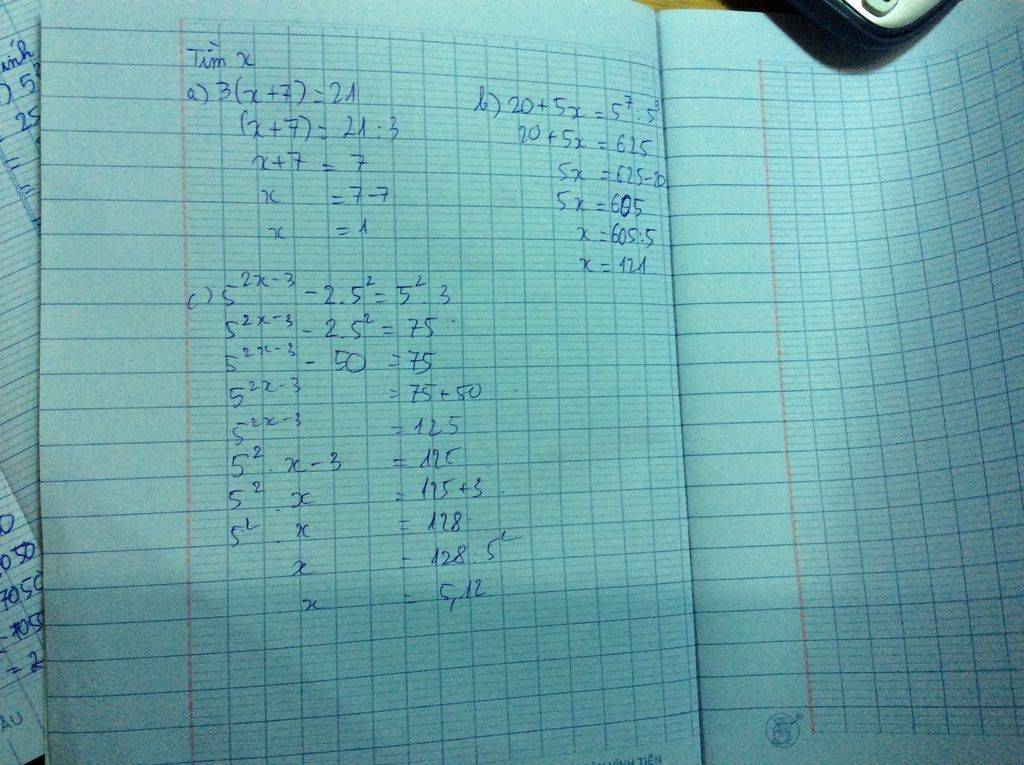 Tìm x
a) 3(x+7) = 21
(x+7) = 21 : 3
x+7 = 7
x = 7-7
x = 1
b) 20+5x = 5⁷ : 5³
20+5x = 625
5x = 625-20
5x = 605
x = 605:5
x = 121
c) 5²ˣ⁻³ - 2.5² = 5² . 3
5²ˣ⁻³ - 2.5² = 75
5²ˣ⁻³ - 50 = 75
5²ˣ⁻³ = 75+50
5²ˣ⁻³ = 125
5² . x-3 = 125
5² . x = 125+3
5² . x = 128
x = 128:5²
x = 5,12
5
25
=
=
050
7050
-7050
= 2
VĨNH TIẾN